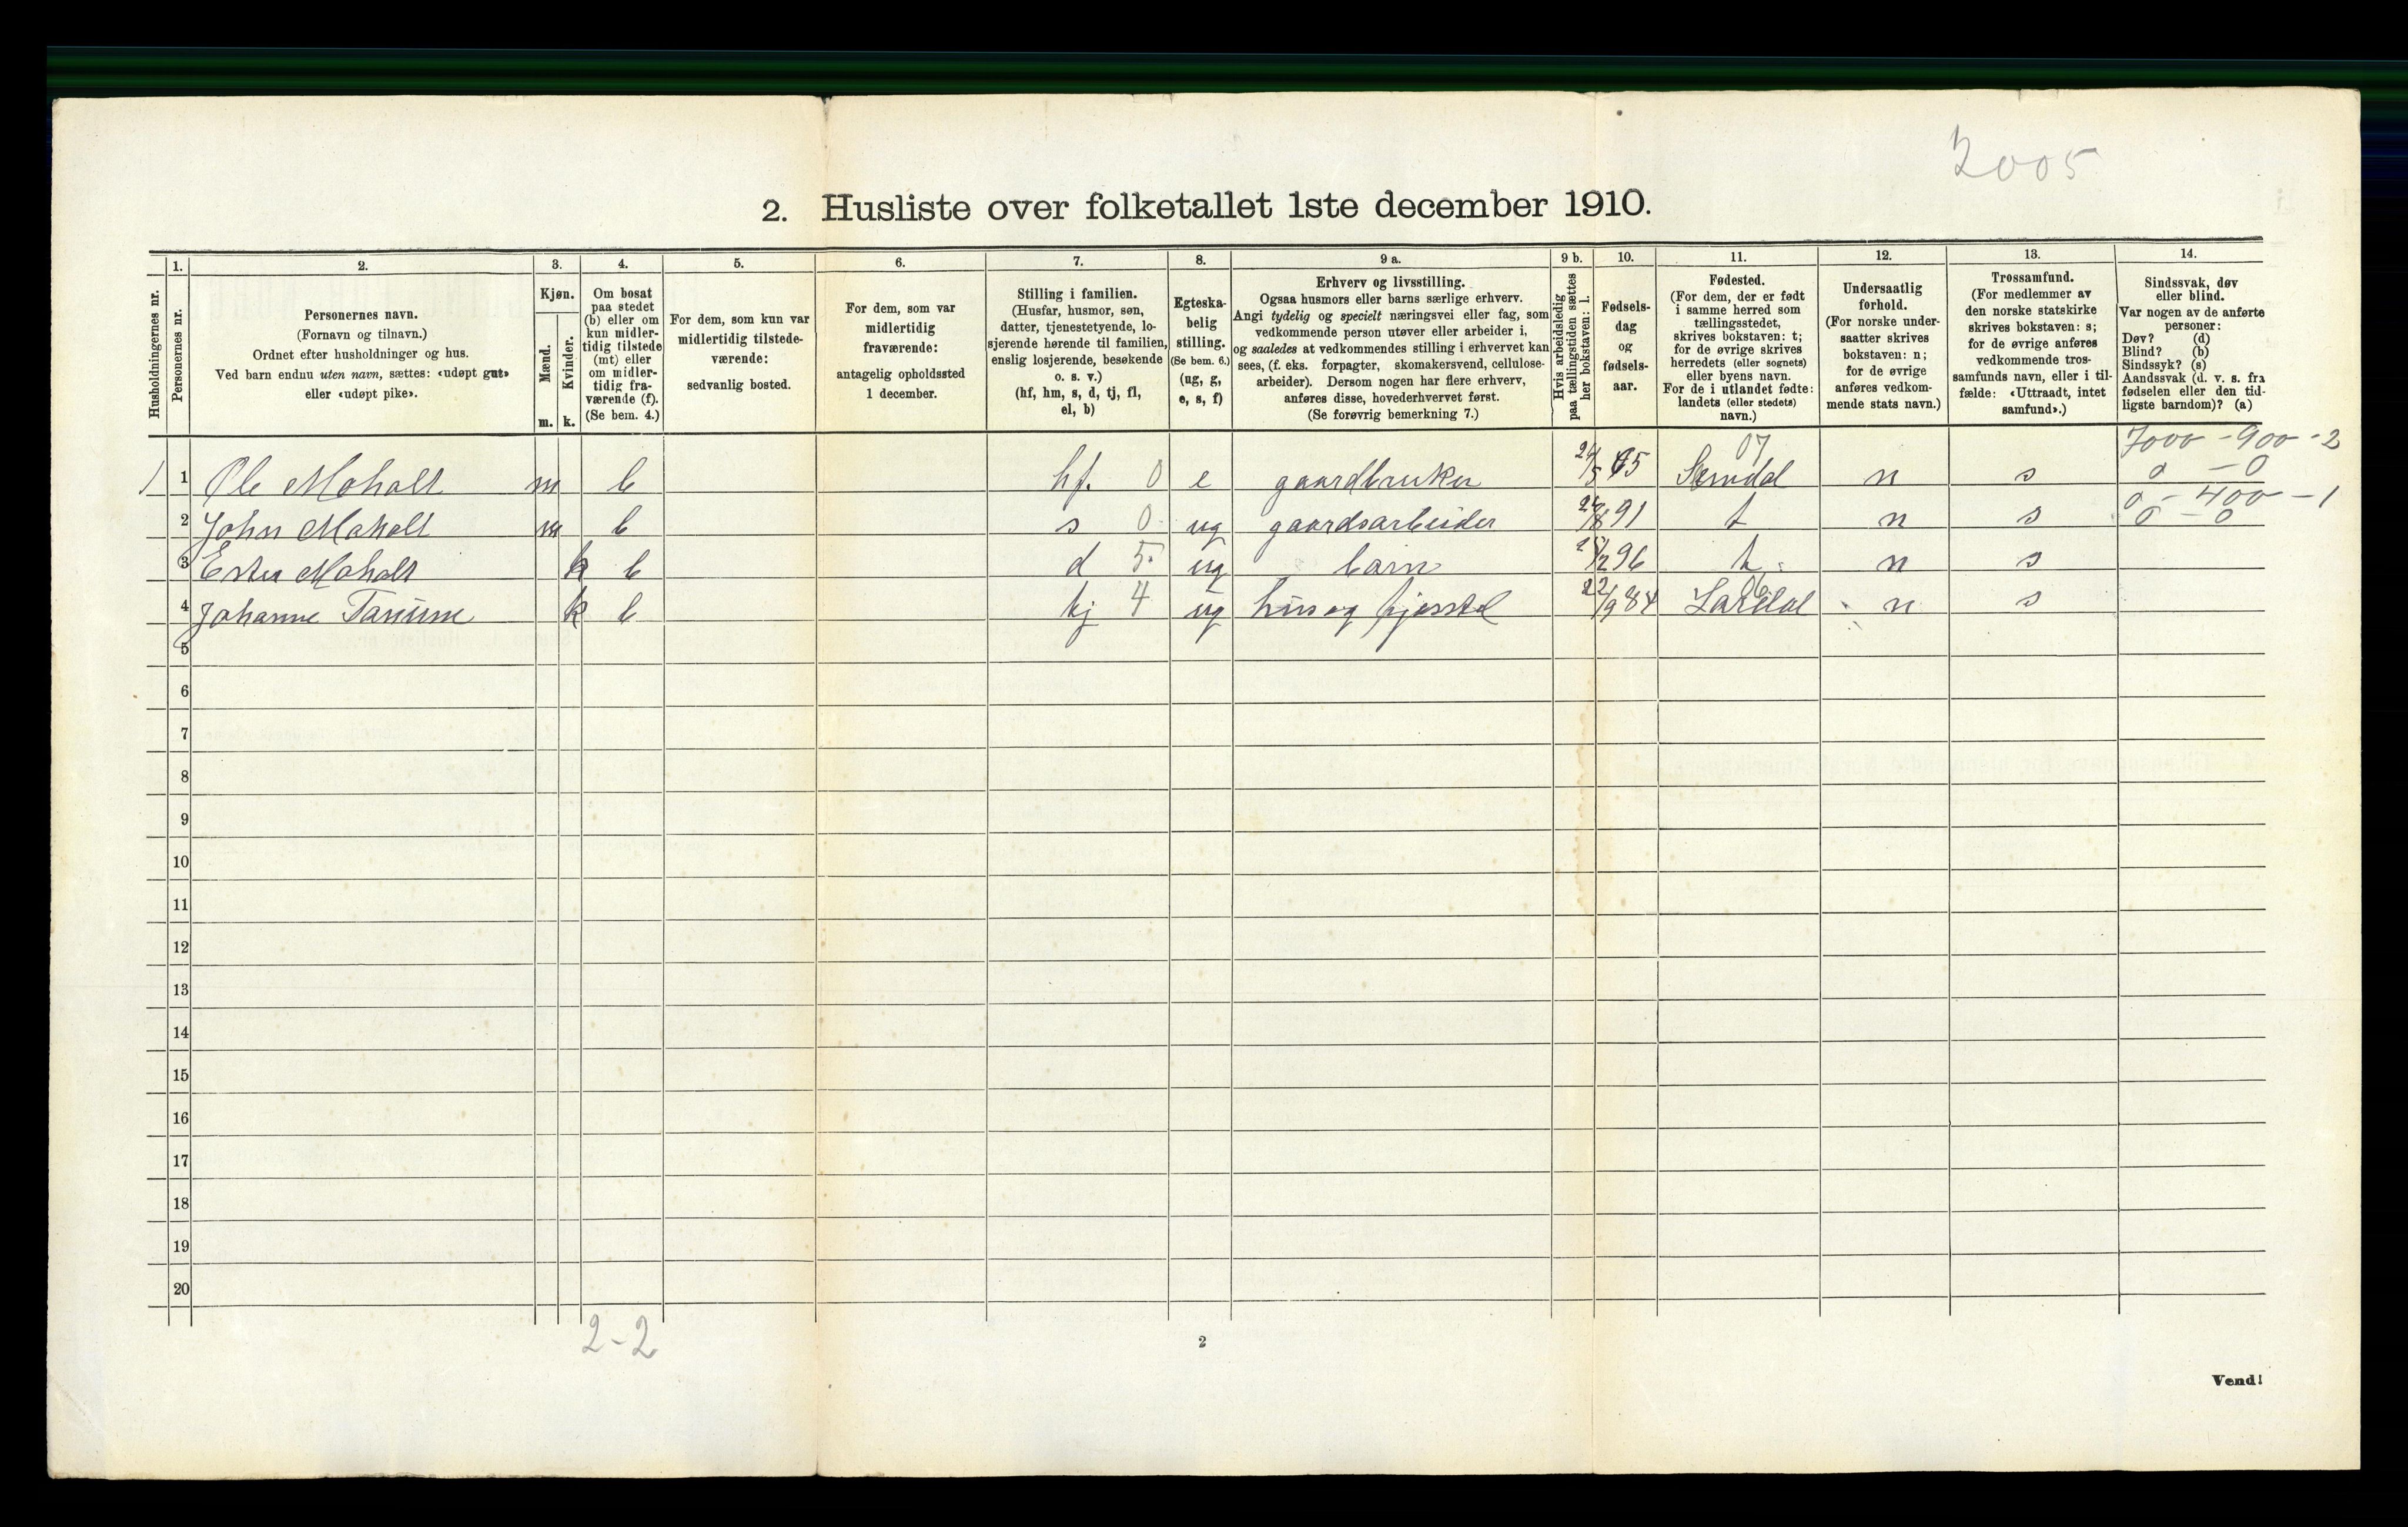 2005
2. Husliste over folketallet 1ste december 1910.
Husholdningernes nr.
1. Personernes nr.
2. Personernes navn.
(Fornavn og tilnavn.)
Ordnet efter husholdninger og hus.
Ved barn endnu uten navn, sættes: «udøpt gut»
eller «udøpt pike».
3. Kjøn.
Mænd. m.
Kvinder. k.
4. Om bosat
paa stedet
(b) eller om
kun midler-
tidig tilstede
(mt) eller
om midler-
tidig fra-
værende (f).
(Se bem. 4.)
5. For dem, som kun var
midlertidig tilstede-
værende:
sedvanlig bosted.
6. For dem, som var
midlertidig
fraværende:
antagelig opholdssted
1 december.
7. Stilling i familien.
(Husfar, husmor, søn,
datter, tjenestetyende, lo-
sjerende hørende til familien,
enslig losjerende, besøkende
o. s. v.)
(hf, hm, s, d, tj, fl,
el, b)
8. Egteska-
belig
stilling.
(Se bem. 6.)
(ug, g,
e, s, f)
9 a. Erhverv og livsstilling.
Ogsaa husmors eller barns særlige erhverv.
Angi tydelig og specielt næringsvei eller fag, som
vedkommende person utøver eller arbeider i,
og saaledes at vedkommendes stilling i erhvervet kan
sees, (f. eks. forpagter, skomakersvend, cellulose-
arbeider). Dersom nogen har flere erhverv,
anføres disse, hovederhvervet først.
(Se forøvrig bemerkning 7.)
9 b. Hvis arbeidsledig
paa tællingstiden sættes
her bokstaven: l.
10. Fødsels-
dag
og
fødsels-
aar.
11. Fødested.
(For dem, der er født
i samme herred som
tællingsstedet,
skrives bokstaven: t;
for de øvrige skrives
herredets (eller sognets)
eller byens navn.
For de i utlandet fødte:
landets (eller stedets)
navn.)
12. Undersaatlig
forhold.
(For norske under-
saatter skrives
bokstaven: n;
for de øvrige
anføres vedkom-
mende stats navn.)
13. Trossamfund.
(For medlemmer av
den norske statskirke
skrives bokstaven: s;
for de øvrige anføres
vedkommende tros-
samfunds navn, eller i til-
fælde: «Uttraadt, intet
samfund».)
14. Sindssvak, døv
eller blind.
Var nogen av de anførte
personer:
Døv? (d)
Blind? (b)
Sindssyk? (s)
Aandssvak (d. v. s. fra
fødselen eller den tid-
ligste barndom)? (a)
07 7000 - 900 - 2
1 1 Ole Moholt m b hf. 0 e gaardbruker 24/5 65 n s 0 - 0
0 - 400 - 1
2 John Moholt m b s 0 ug gaardsarbeider 91 t n s 0 - 0
3 Ester Moholt k b d 5 ug barn 96 t n s
06
4 Johanne k b tj 4 ug hus og fjøsstel 22/9 84 n s
5
6
7
8
9
10
11
12
13
14
15
16
17
18
19
20
2-2
2
Vend!